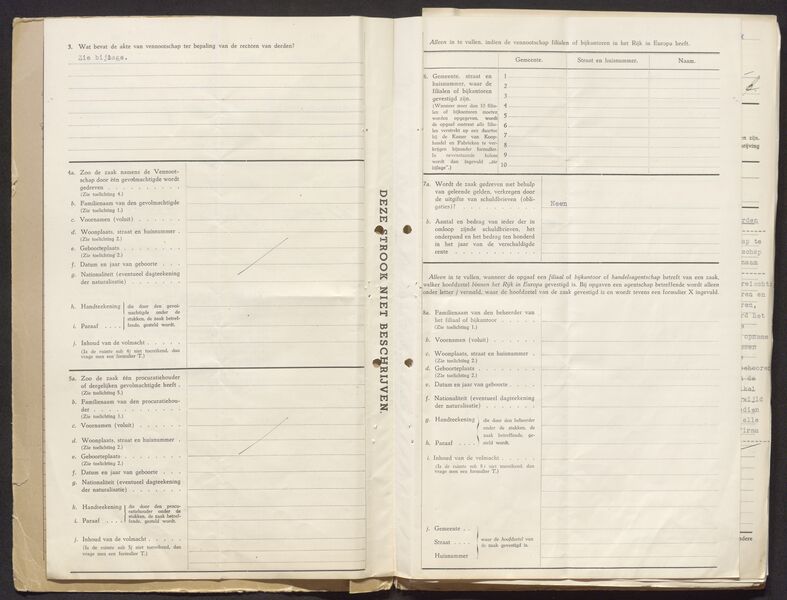 3. Wat bevat de akte van vennootschap ter bepaling van de rechten van derden?
Zie bijlage.
4a. Zoo de zaak namens de Vennoot-
schap door één gevolmachtigde wordt
gedreven
(Zie toelichting 4.)
b. Familienaam van den gevolmachtigde
(Zie toelichting 1.)
c. Voornamen (voluit)
d. Woonplaats, straat en huisnummer.
(Zie toelichting 2.)
e. Geboorteplaats
(Zie toelichting 2.)
f. Datum en jaar van geboorte
g. Nationaliteit (eventueel dagteekening
der naturalisatie)
h. Handteekening
i. Paraaf
die door den gevol-
machtigde onder de
stukken, de zaak betref-
fende, gesteld wordt.
j. Inhoud van de volmacht
(Is de ruimte sub 4j niet toereikend, dan
vrage men een formulier T.)
5a. Zoo de zaak één procuratiehouder
of dergelijken gevolmachtigde heeft.
(Zie toelichting 5.)
b. Familienaam van den procuratiehou-
der
(Zie toelichting 1.)
c. Voornamen (voluit)
d. Woonplaats, straat en huisnummer
(Zie toelichting 2.)
e. Geboorteplaats
(Zie toelichting 2.)
f. Datum en jaar van geboorte
g. Nationaliteit (eventueel dagteekening
der naturalisatie)
h. Handteekening
i. Paraaf
die door den procu-
ratiehouder onder de
stukken, de zaak betref-
fende, gesteld wordt.
j. Inhoud van de volmacht
(Is de ruimte sub 5j niet toereikend, dan
vrage men een formulier T.)
DEZE STROOK NIET BESCHRIJVEN.
Alleen in te vullen, indien de vennootschap filialen of bijkantoren in het Rijk in Europa heeft.
Gemeente. Straat en huisnummer. Naam.
6. Gemeente, straat en
huisnummer, waar de
filialen of bijkantoren
gevestigd zijn.
(Wanneer meer dan 10 filia-
len of bijkantoren moeten
worden opgegeven, wordt
de opgaaf omtrent alle filia-
len verstrekt op een daartoe
bij de Kamer van Koop-
handel en Fabrieken te ver-
krijgen bijzonder formulier.
In nevenstaande kolom
wordt dan ingevuld „zie
bijlage”.)
1
2
3
4
5
6
7
8
9
10
7a. Wordt de zaak gedreven met behulp
van geleende gelden, verkregen door
de uitgifte van schuldbrieven (obli-
gaties)?
Neen
b. Aantal en bedrag van ieder der in
omloop zijnde schuldbrieven, het
onderpand en het bedrag ten honderd
in het jaar van de verschuldigde
rente
Alleen in te vullen, wanneer de opgaaf een filiaal of bijkantoor of handelsagentschap betreft van een zaak,
welker hoofdzetel binnen het Rijk in Europa gevestigd is. Bij opgaven een agentschap betreffende wordt alleen
onder letter j vermeld, waar de hoofdzetel van de zaak gevestigd is en wordt tevens een formulier X ingevuld.
8a. Familienaam van den beheerder van
het filiaal of bijkantoor
(Zie toelichting 1.)
b. Voornamen (voluit)
c. Woonplaats, straat en huisnummer
(Zie toelichting 2.)
d. Geboorteplaats
(Zie toelichting 2.)
e. Datum en jaar van geboorte
f. Nationaliteit (eventueel dagteekening
der naturalisatie)
g. Handteekening
h. Paraaf
die door den beheerder
onder de stukken, de
zaak betreffende, ge-
steld wordt.
i. Inhoud van de volmacht
(Is de ruimte sub 8i niet toereikend, dan
vrage men een formulier T.)
j. Gemeente
Straat
Huisnummer
waar de hoofdzetel van
de zaak gevestigd is.